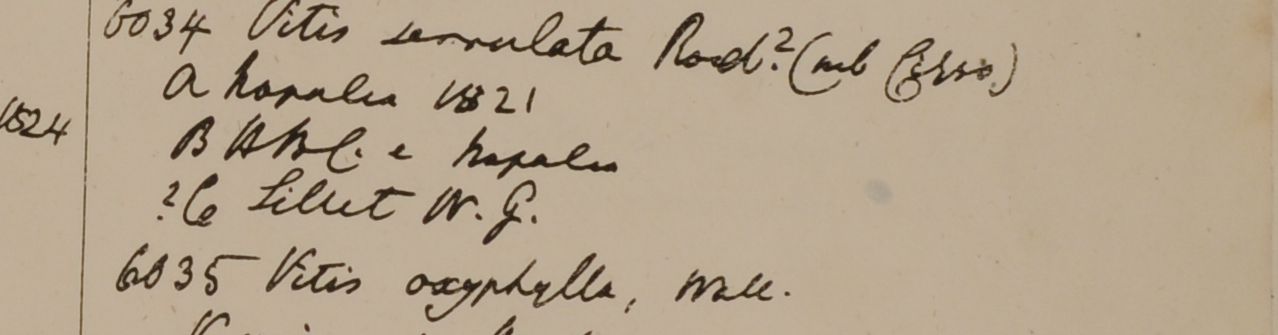 6034 Vitis serrulata Roxb? (sub Cisso.)
A Napalia 1821
1824
B HBC. e Napalia
?C Sillet W. G.
6035 Vitis oxyphylla, Wall.